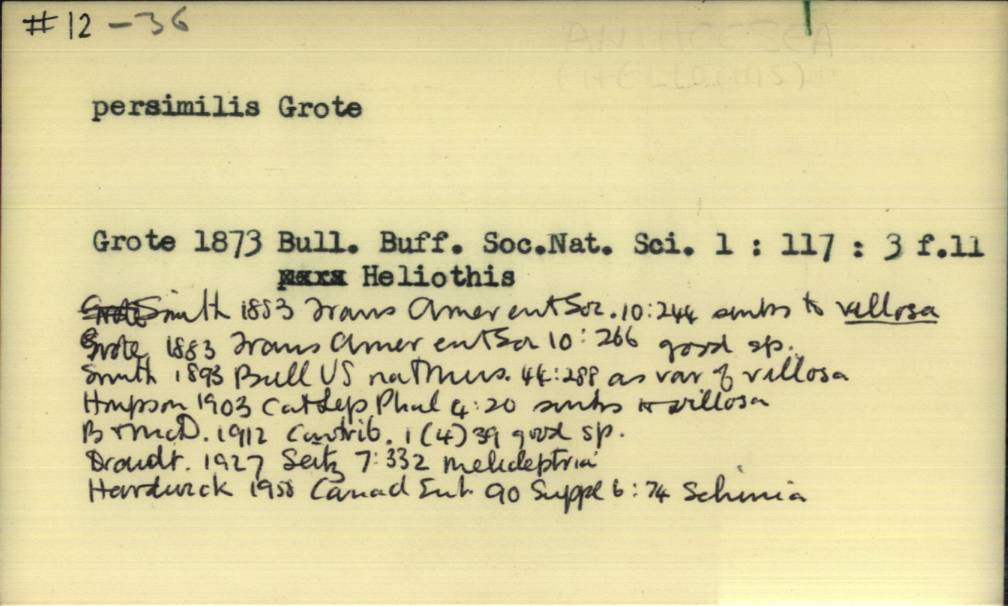 #12-36
persimilis Grote
Grote 1873 Bull. Buff. Soc.Nat. Sci. 1 : 117 : 3 f.11
Heliothis
Smith 1883 Trans Amer ent Soc. 10:244 sinks to villosa
Grote 1883 Trans Amer ent Soc 10:266 good sp.
Smith 1893 Bull US nat Mus. 44:288 as var of villosa
Hmpson 1903 Cat Lep Phal 4:20 sinks to villosa
B+McD. 1912 Contrib. 1(4)39 good sp.
Draudt. 1927 Seitz 7:332 melicleptria
Hardwick 1958 Canad Ent. 90 Suppl 6:74 Schinia